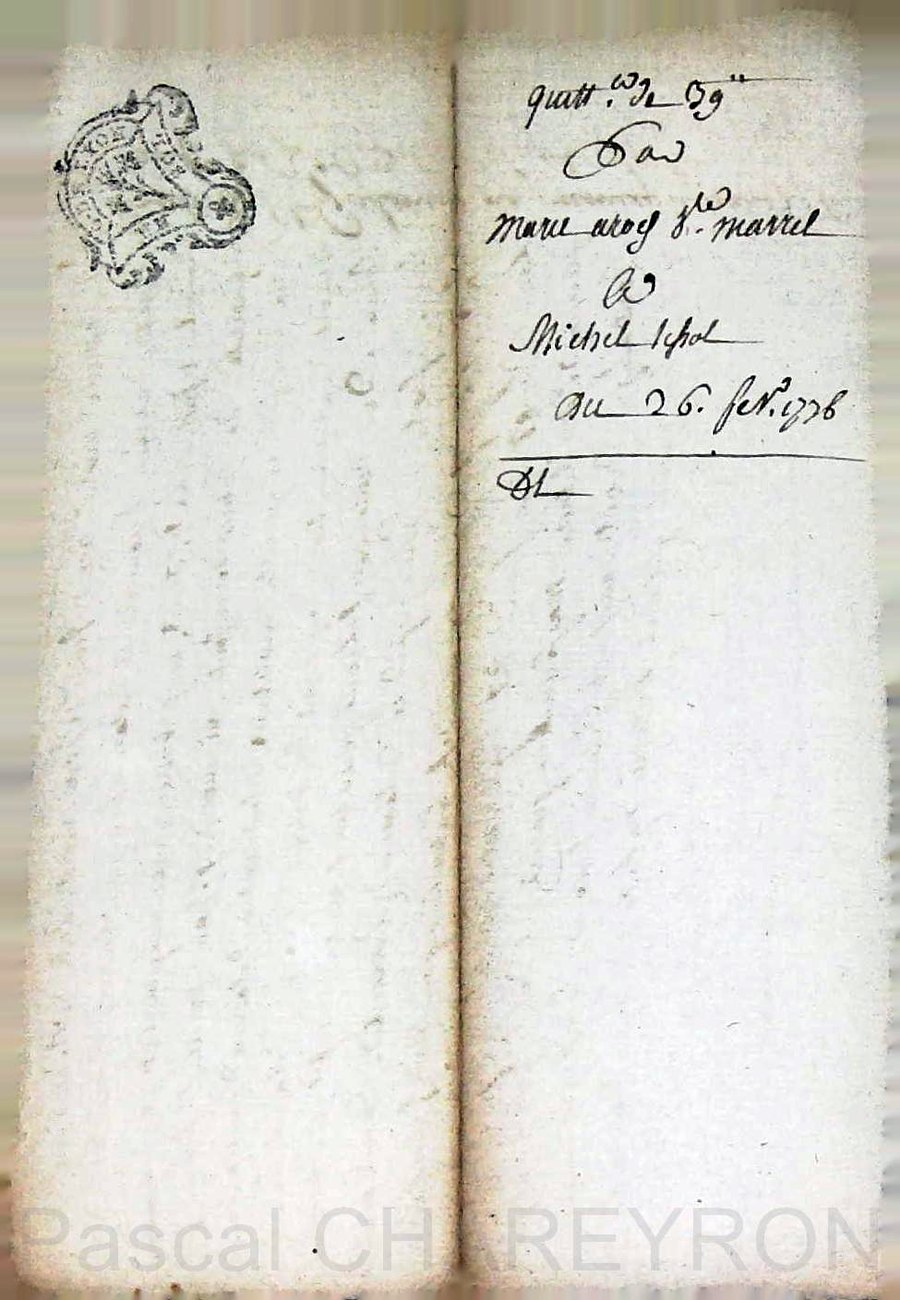 quitt.ce de 59ll
Par
marie aroc͡s v.ve marrel
A
Michel
Du 26. fev.r 1776
Pascal CHAREYRON